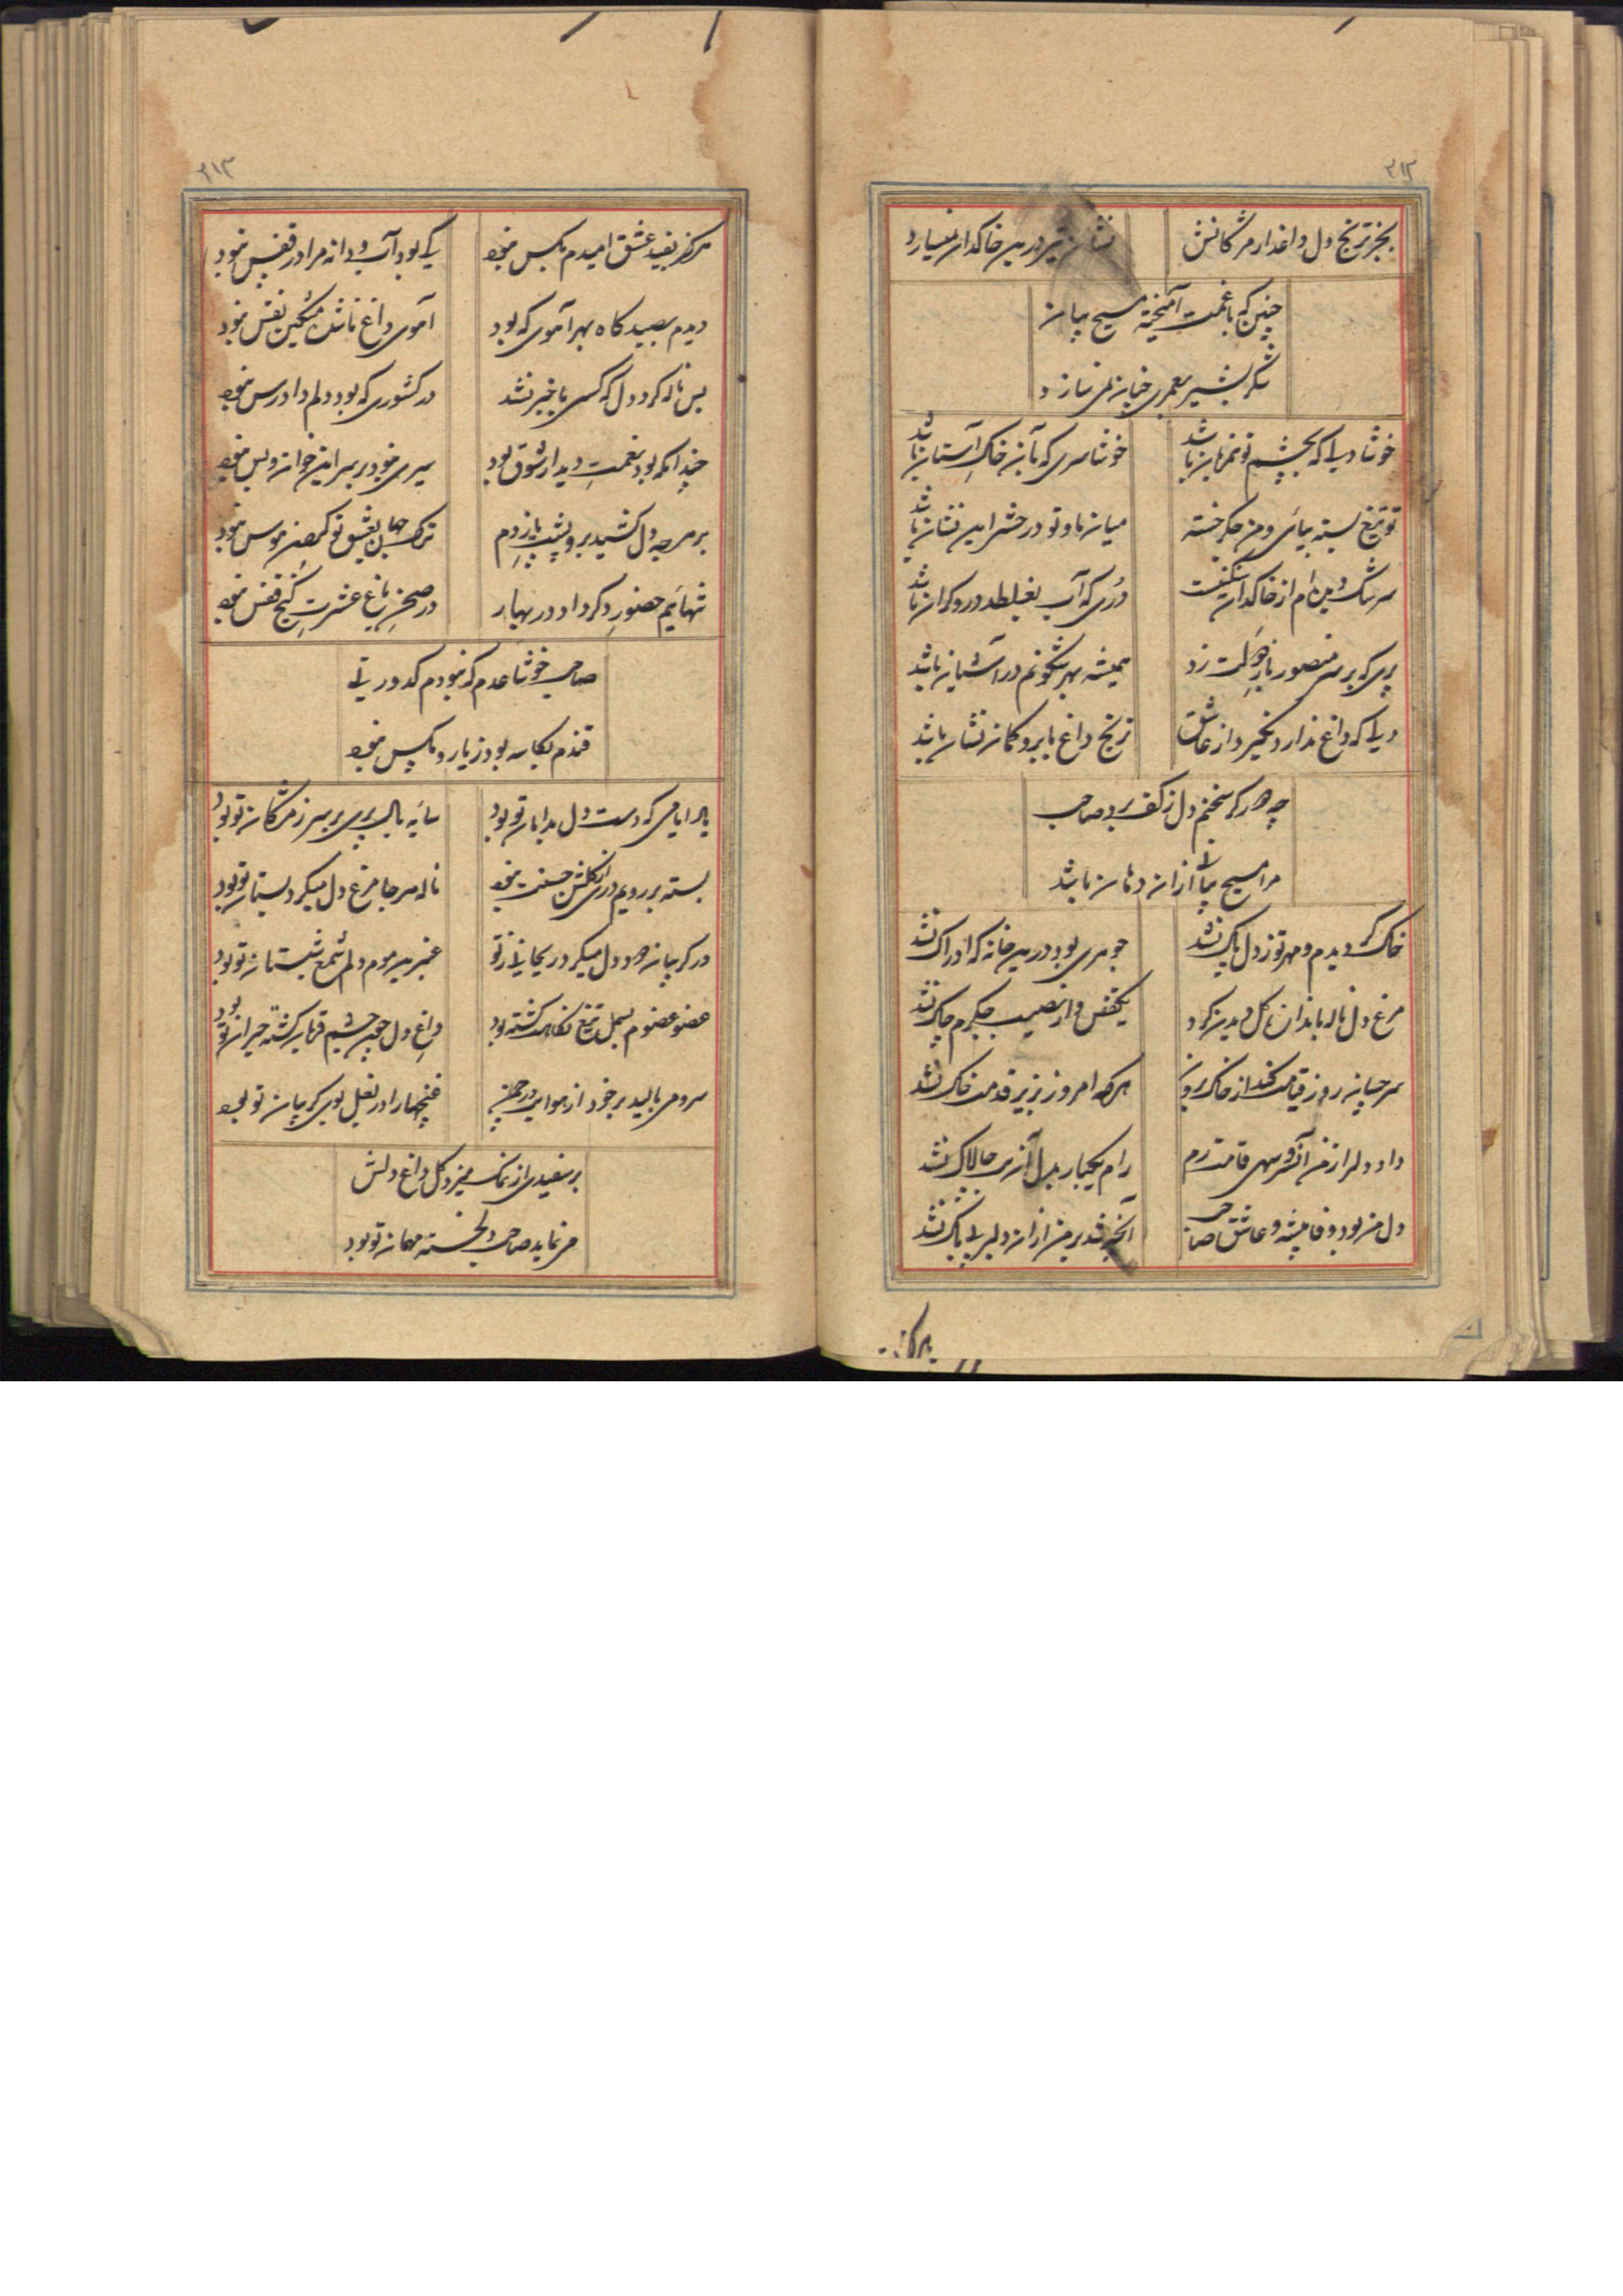 ۳۱۲
بجز ترنج دل داغدار مژگانش
نشان تیر درین خاکدان نمیسازد
چنین که با غمت آمیخته مسیح بیان
شکر بشیر بعمری چنان نمیسازد
خوشا دلی که بچشم تو نمزبان باشد
خوشا سری که بآن خاک آستان باشد
تو تیغ بسته بیائی و من جگر خسته
میان ما و تو در حشر این نشان باشد
سرشک من از خاکدان
دری که آب بغلطد درو گران باشد
پری که بر سر منصور باز
همیشه بهر شگونم در آشیان باشد
دلی که داغ ندارد نخیزد از عاشق
ترنج داغ بابرو کمان نشان باشد
چه هر که سخنم دل ز کف برد صاحب
مرا مسیح بیانی ازان دهان باشد
خاک گردیدم و مهر تو ز دل پاک نشد
جوهری بود درین خانه که ادراک نشد
مرغ دل ناله باندازه گل دیدن کرد
یک قفس وار نصیب جگرم چاک نشد
سر چسان روز قیامت کند از خاک برون
هر که امروز بزیر قدمت خاک نشد
داد دلرا ز من آن سرو سهی قامت رم
رام یکبار بدل آن بت چالاک نشد
دل من بود وفا پیشه و عاشق صاحب
آنچه شد بر من ازان دلبر بیباک نشد
هرگز
۳۱۳
هرگز بقید عشق امیدم بکس نبود
کی بود آب و دانه مرا در قفس نبود
دیدم بصیدگاه بهر آهوی که بود
آهوی داغ نافه مشکین نفس نبود
بس ناله کرد دل که کسی با خبر نشد
در کشوری که بود دلم دادرس نبود
چندانکه بود نعمت دیدار شوق بود
سیری نبود بر سر این خوان و بس نبود
بر هر چه دل کشید برو پشت پا زدم
ترک جهان بعشق تو کم از هوس نبود
تنهائیم حضور دگر داد در بهار
در صحن باغ عشرت کنج قفس نبود
صاحب خوشا عدم که نبودم کدورتی
قندم بکاسه بود ز یار و مگس نبود
یاد ایامی که دست دل بدامان تو بود
سایه بال پری بر سر ز مژگان تو بود
بسته بر رویم دری از گلشن حسنت نبود
ناله هر جا مرغ دل میکرد بستان تو بود
در گریبان هر دو دل میکرد ریحانی ز تو
عنبرین موم دلم شمع شبستان تو بود
عضو عضوم بسمل تیغ نگاهت گشته بود
داغ دل چون چشم قربان گشته حیران تو بود
سرو می بالید بر خود از هوایت در چمن
غنچها را در بغل بوی گریبان تو بود
بر سفیدی از نمک میزد گل داغ دلش
می نماید صاحب دلخسته مهمان تو بود